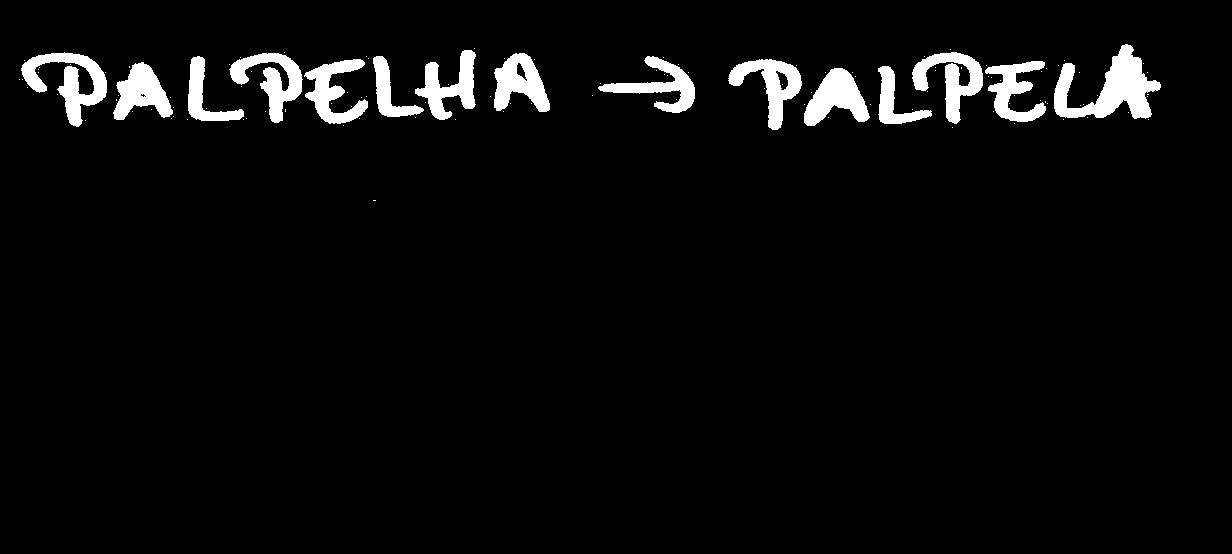 PALPELHA → PALPELA